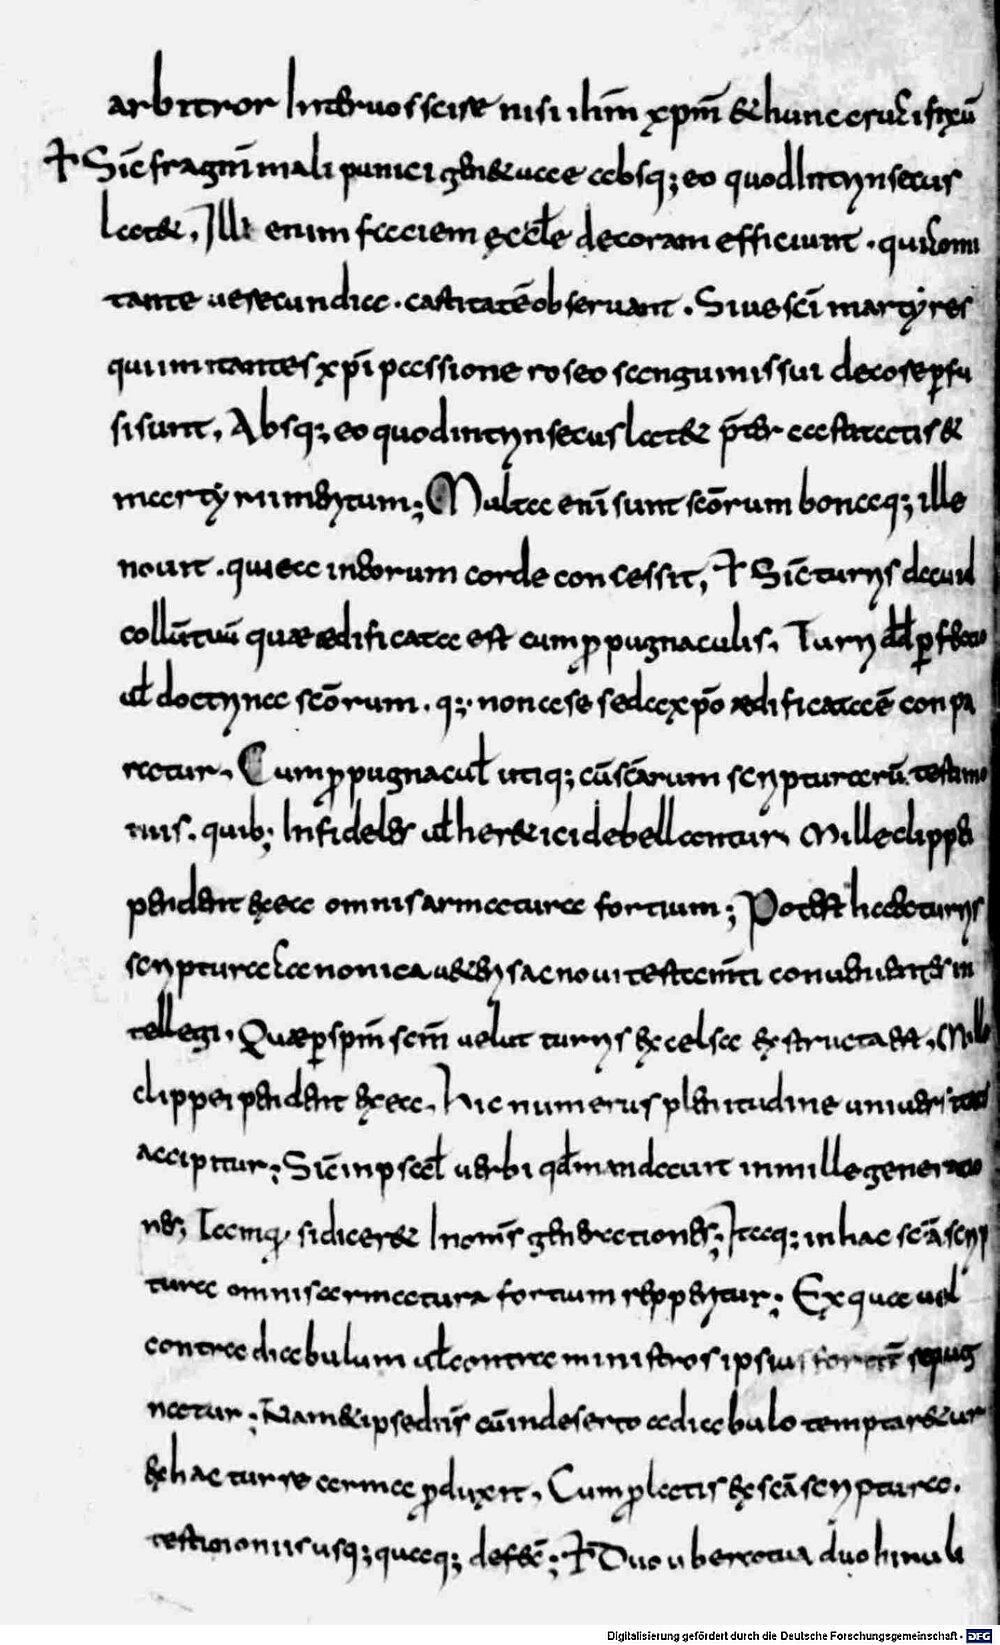 arbitror Inter vos scire nisi ihm̄ xpm̄ & hunc crucifixū
Sic̄ fragm̄ mali punici gen& uae absq; eo quod Intrynsecus
lat&. Illi enim faciem eccłe decoram efficiunt . qui comi
tante uerecundia . castitatē observant . Sive sci̅ martyres
qui imitantes xp̅i passione roseo sanguinis sui decore ꝑfu
si sunt, Absq; eo quod intrynsecus lat& p̄ter castatatis &
martyrii merytum; Multa eni̅ sunt sco̅rum bonaq; ille
nouit . qui ea in eorum corde concessit, Sic̄ turrys dauid
collu̅ tuu̅ quae aedificata est cum ꝓpugnaculis, Turry dd̄ ꝑfecta
uł doctryna sco̅rum . q; non a se sed a xp̅o aedificata e̅ conpa
ratur, Cum ꝓpugnacuł utiq; cu̅ sc̄arum scrypturaru̅ testimo
niis . quib; Infideles uł heretici debellantur, Mille clippei
pendent ex ea omnis armatura fortium; Potest haec turrys
scryptura canonica ueterys ac noui testam̄ti conuenienter in
tellegi, Quae ꝑ spm̄ scm̄ uelut turrys excelsa exstructa est, Mille
clippei pendent ex ea, Hic numerus plenitudine uniuersitatis
accipitur; Sic̄ in psał uerbi qđ mandauit in mille generatio
nes; Tamq̄ si dicer& In om̄s generationes; Itaq; in hac sc̄a scryp
tura omnis armatura fortium repperytur; Ex qua uel
contra diabulum uł contra ministros ipsius fortit̄ repug
natur; Nam & ipse dn̄s cu̅ in deserto a diabulo temptaretur
ex hac turre arma ꝓduxit, Cum ꝓlatis ex sc̄a scryptura.
testimoniis usq; quaq; defec̄; Duo ubera tua duo hinuli
Digitalisierung gefördert durch die Deutsche Forschungsgemeinschaft - DFG